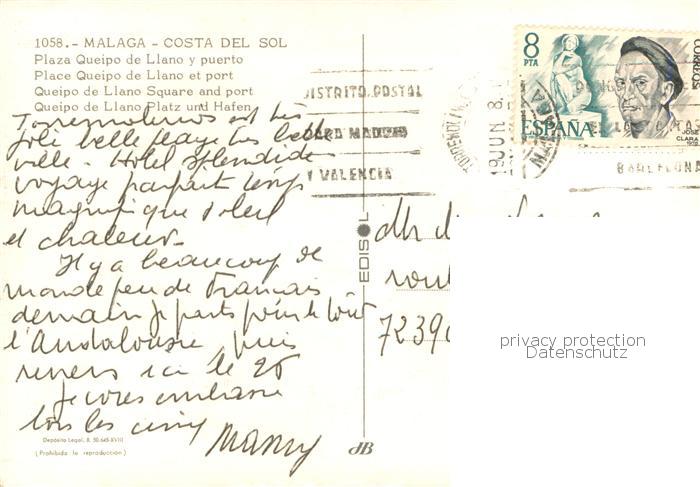 1058.- MALAGA - COSTA DEL SOL
Plaza Queipo de Llano y puerto
Place Queipo de Llano et port
Queipo de Llano Square and port
Queipo de Llano Platz und Hafen
Torremolinos est très
joli belle plage très belle
ville - Hotel splendide
voyage parfait temps
magnifique soleil
et chaleur.
Il y a beaucoup de
monde peu de Francais
demain je parts pour le tout
l'Andalousie puis
reviens ici le 26
Je vous embrasse
tous les cinq
Mamy
Depósito Legal, B. 50.645-XVIII
(Prohibida la reproducción)
EDISOL
JB
DISTRITO POSTAL
PARA MADRID
Y VALENCIA
19 JUN 8
MALAGA
BARCELONA
8
PTA
ESPAÑA
CORREOS
JOSE
CLARA
72390
privacy protection
Datenschutz